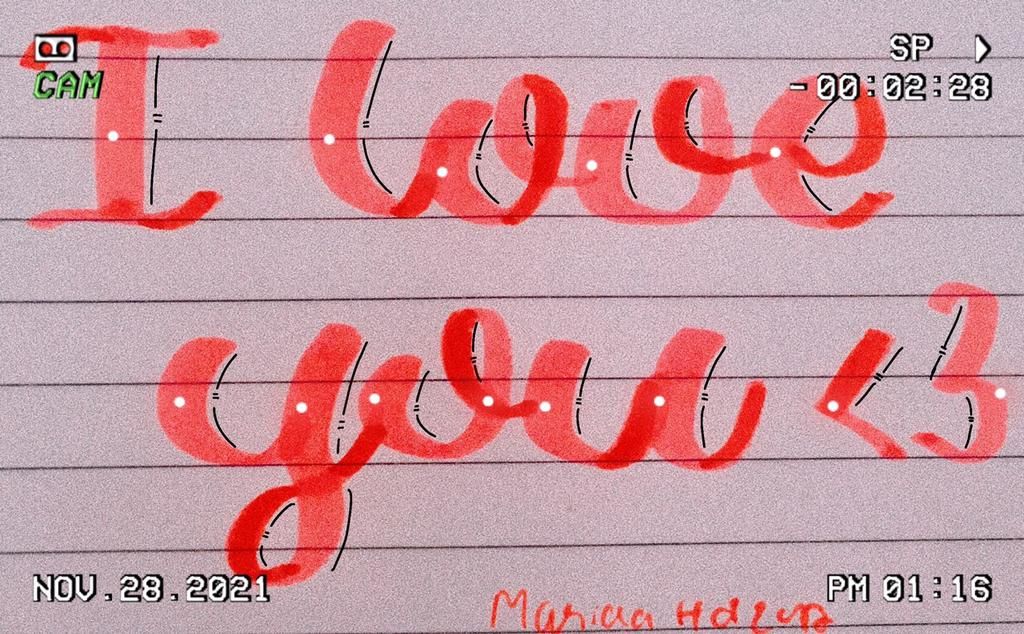 CAM
SP
-00:02:28
I love
you <3
NOV.28.2021
PM 01:16